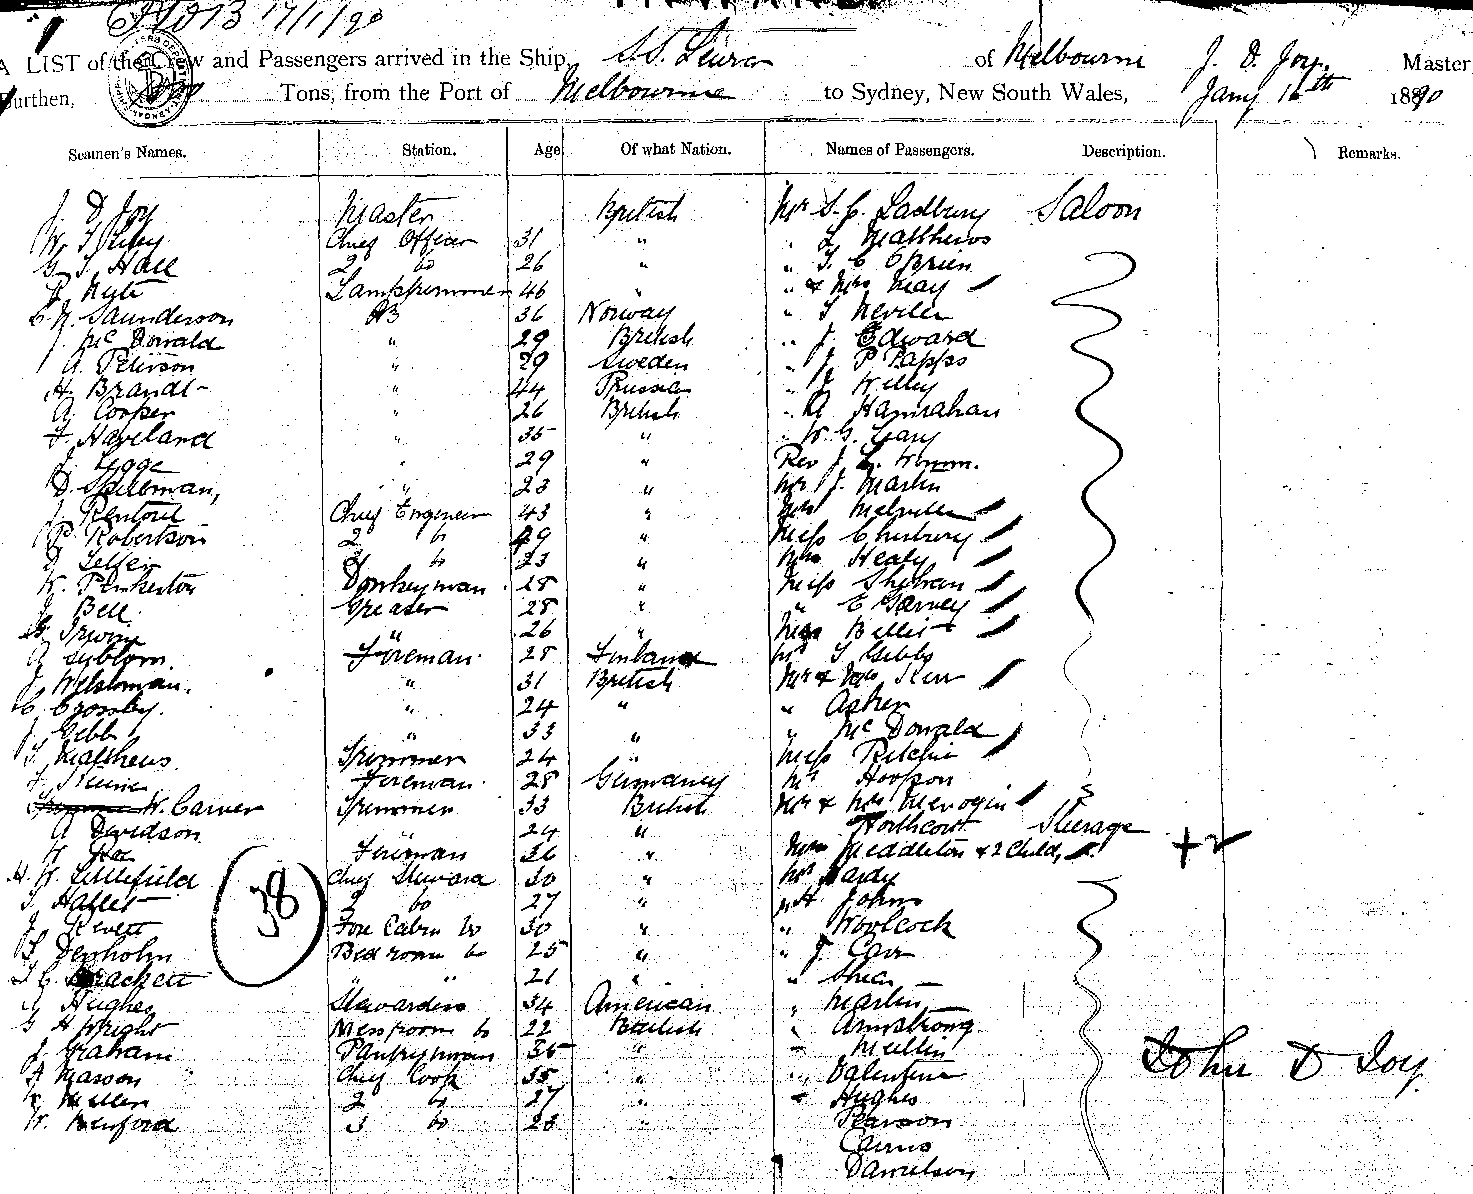 17/1/90
A LIST of the Crew and Passengers arrived in the Ship, S.S. Leura of Melbourne J. D. Joy, Master
Burthen, Tons, from the Port of Melbourne to Sydney, New South Wales, Jany 16th 1890
Seamen's Names. Station. Age Of what Nation. Names of Passengers. Description. Remarks.
J. D Joy Master British Mr S. C. Ladbury Saloon
W. T Chief Officer 31 " " L Matthews
G. T. Hall 2 do 26 " " T. C O'Brien
Nyte Lamptrimmer 46 " " & Mrs May
C. N. Saunderson AB 36 Norway " T Neville
J. McDonald " 29 British " J. Edward
A. Peterson " 29 Sweden " J P Papps
H. Brandt " 44 Prussia " J Willey
A Cooper " 26 British " A Hanrahan
F. Haveland " 35 " " W. G. Gary
J. Legge " 29 " Rev J. L.
D. Spillman, " 23 " Mr J. Martin
J. Rentoul Chief Engineer 43 " Mrs Melville
P. Robertson 2 do 49 " Miss
Telfer 3 do 23 " Mrs Healy
W. Pinkerton Donkeyman 28 " Miss
J. Bell Greaser 28 " " E Garvey
G. Irwin " 26 " Miss
A Fireman 28 Finland Mr T Gibbs
J. Welshman. " 31 British Mr & Mrs Kerr
C Crossley. " 24 " " Asher
J. Gebb " 33 " " McDonald
T. Matthews Trimmer 24 " Miss Ritchie
J. Fireman 28 Germany Mr Hopson
W. Carver Trimmer 33 British Mr & Mrs
A Davidson " 24 " Northcott Steerage
Fireman 36 " Mrs Middleton & 2 Child, +2
H. W. Littlefield Chief Steward 30 " Mr Hardy
T. Hallet 2 do 27 " " H Johns
J. Revett 38 Fore Cabin do 30 " " Woolcock
Denholm Bedroom do 25 " " J. Carr
T C Brackett " " 21 " " Shea
Hughes Stewardess 34 American " Martin
G H Wright Messroom do 22 British " Armstrong
J. Graham Pantryman 35 " " Mullin
A Masson Chief Cook 35 " " Valentine John D Joy
Miller 2 do 27 " " Hughes
W. Benford 3 do 23 " Pearson
Cairns
Danielson